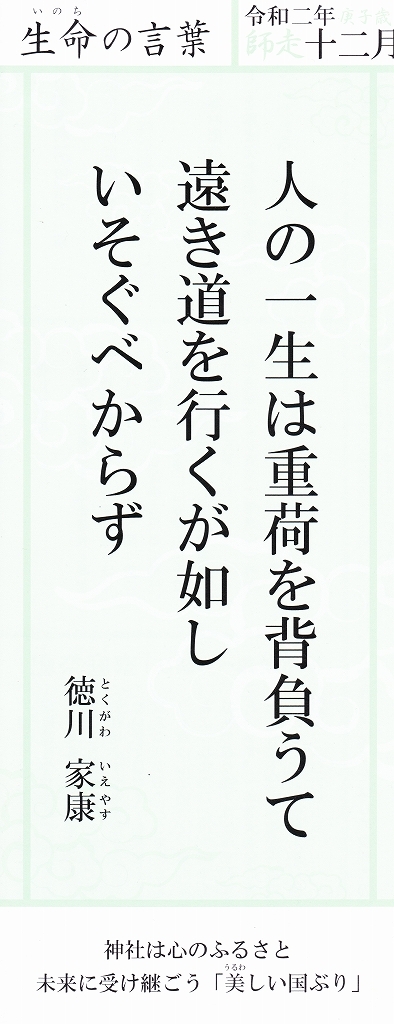 いのち
生命の言葉
令和二年
庚子歳
師走
十二月
人の一生は重荷を背負うて
遠き道を行くが如し
いそぐべからず
とくがわ いえやす
徳川 家康
神社は心のふるさと
うるわ
未来に受け継ごう「美しい国ぶり」